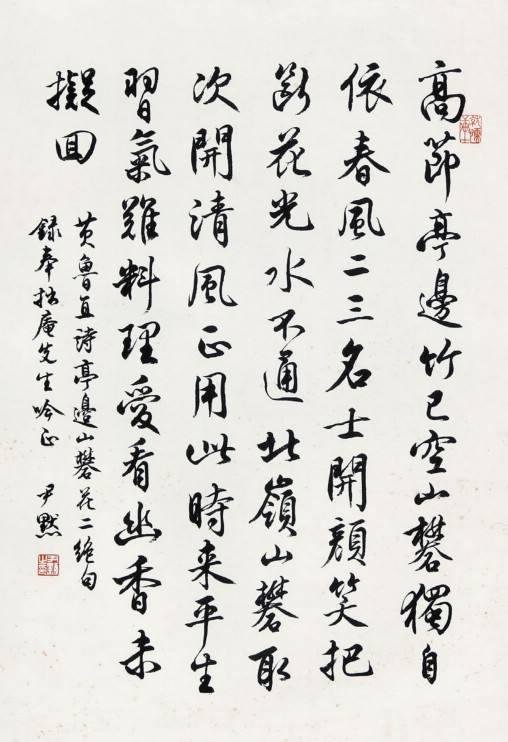 高節亭邊竹已空山礬獨自
依春風二三名士開顏笑把
斷花光水不通北嶺山礬取
次開清風正用此時来平生
習氣難料理愛看幽香未
擬回
黄魯直詩亭邊山礬花二絕句
録奉拙庵先生吟正 尹默